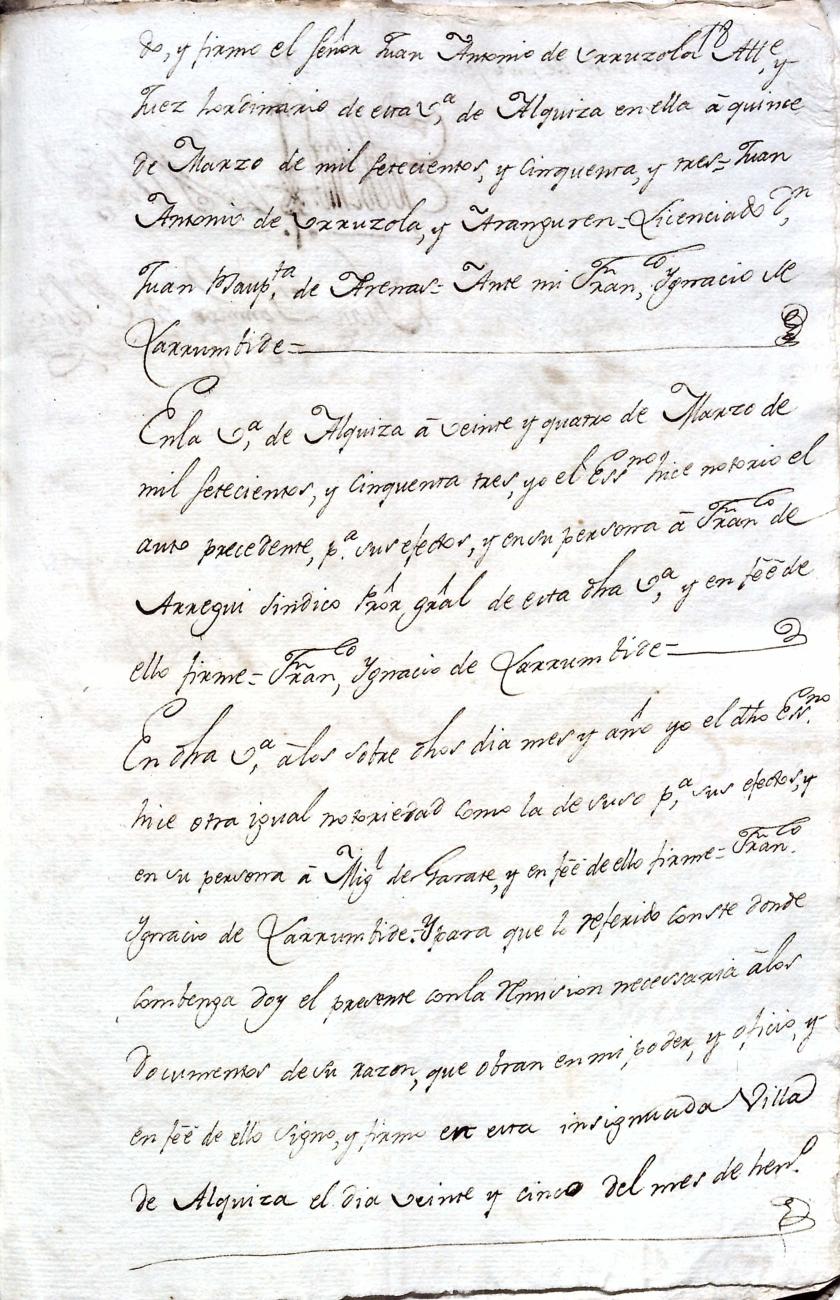 do, y firmo el señor Juan Antonio de Urruzola Alle, y
Juez hordinario de esta Vª, de Alquiza en ella â quince
de Marzo de mil setecientos, y Cinquenta, y tres= Juan
Antonio de Urruzola, y Aranguren= Licenciado Dn,
Juan Baupta, de Arenas= Ante mi Franco, Ygnacio de
Larrumbide=
En la Vª, de Alquiza â veinte y quatro de Marzo de
mil setecientos, y Cinquenta tres, yo el Essno hice notorio el
auto precedente, pª. sus efectos, y en su persona â Franco de
Arregui sindico Pror gral de esta dha Vª, y en feê de
ello firme= Franco, Ygnacio de Larrumbide=
En dha Vª, âlos sobre dhos dia mes y año yo el dho Essno.
hice otra igual notoriedad como la de suso pª, sus efectos, y
en su persona â Migl de Garate, y en feê de ello firme= Franco.
Ygnacio de Larrumbide= Y para que lo referido conste donde
combenga doy el presente conla remision necessaria âlos
Documentos de su razon, que obran en mi poder, y oficio, y
en feê de ello signo, y firmo en esta insignuada Villa
de Alquiza el dia veinte y cinco del mes de henº.